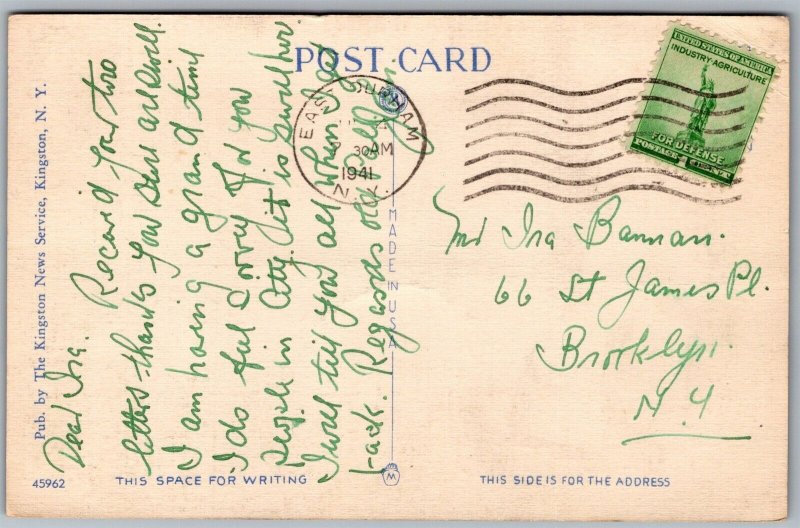 POST CARD
Pub. by The Kingston News Service, Kingston, N. Y.
Dear Ira. Received your two
letters thanks you Sure are Swell.
I am having a grand time
I do feel Sorry for you
people in City it is Swell here.
I will tell you all when I get
back. Regards old
EAST DURHAM
30AM
1941
N.Y.
UNITED STATES OF AMERICA
INDUSTRY-AGRICULTURE
FOR DEFENSE
POSTAGE 1 CENT
MADE IN U.S.A.
Mr Ira Bannan.
66 St James Pl.
Brooklyn.
N.Y
45962
THIS SPACE FOR WRITING
M
THIS SIDE IS FOR THE ADDRESS